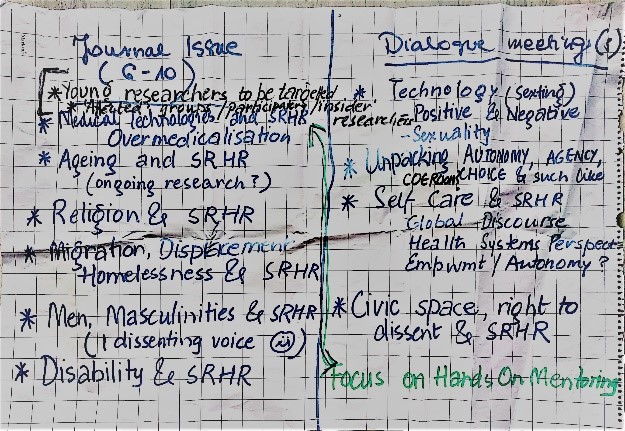 Journal Issue
(6-10)
* Young researchers to be targeted
* "Affected" groups/participants/insider researchers
* Medical Technologies and SRHR
Overmedicalisation
* Ageing and SRHR
(ongoing research?)
* Religion & SRHR
* Migration, Displacement
Homelessness & SRHR
* Men, Masculinities & SRHR
(1 dissenting voice)
* Disability & SRHR
Dialogue meeting(s)
* Technology (sexting)
Positive & Negative
- Sexuality
* Unpacking AUTONOMY, AGENCY,
COERCION, CHOICE & such like
* Self Care & SRHR
Global Discourse
Health Systems Perspect
Empwmt / Autonomy?
* Civic space, right to
dissent & SRHR
Focus on Hands On Mentoring